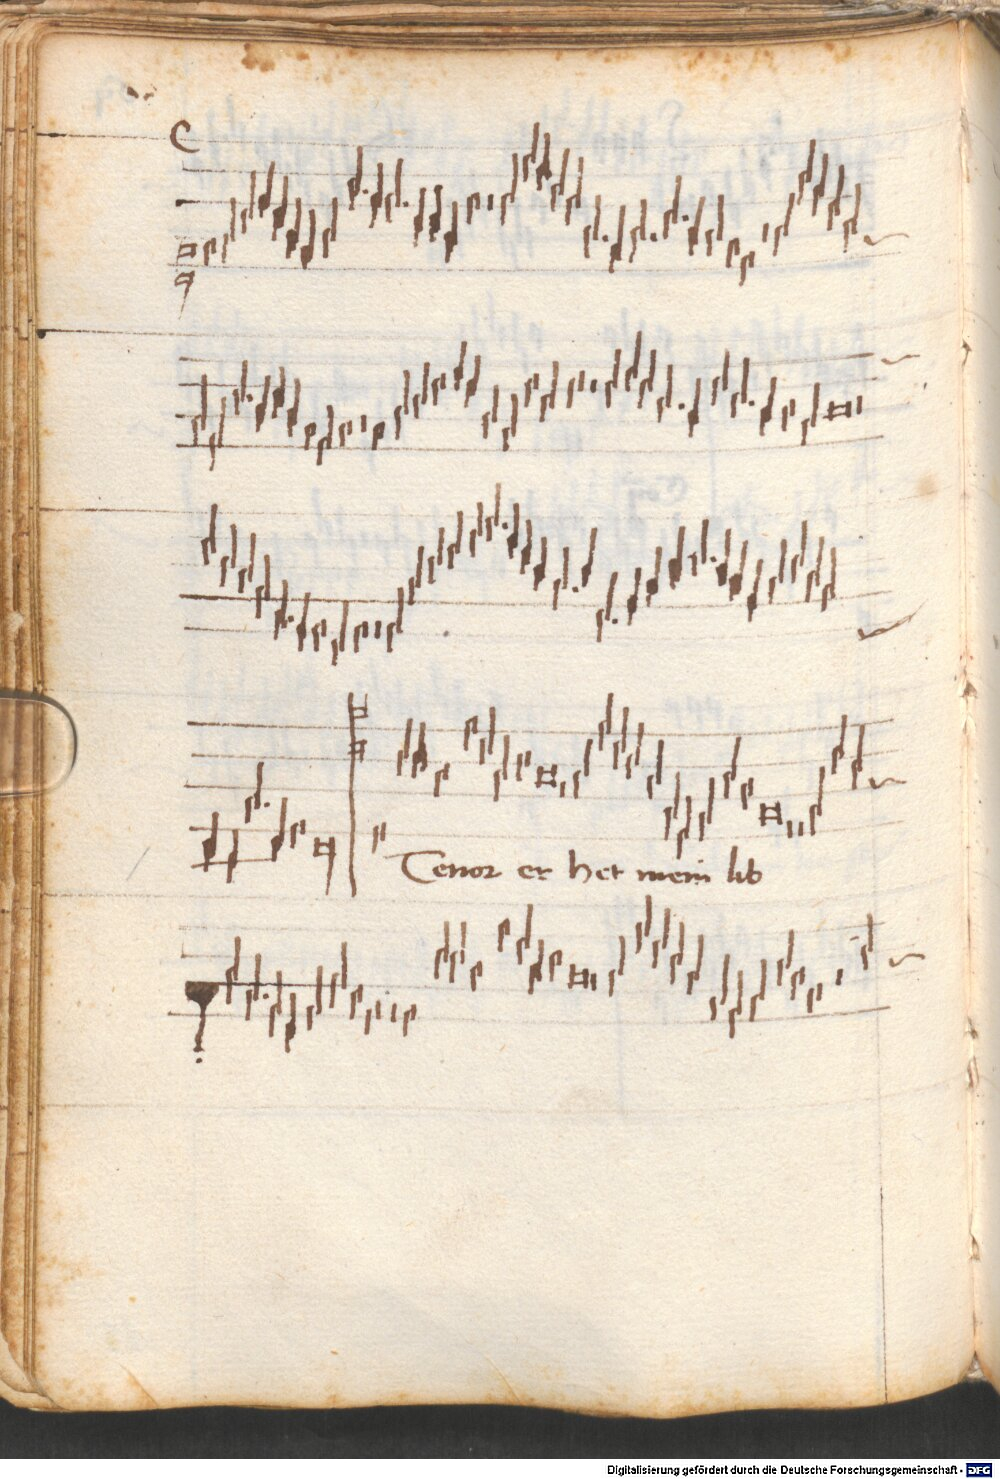 C
Tenor er het mein lib
Digitalisierung gefördert durch die Deutsche Forschungsgemeinschaft - DFG